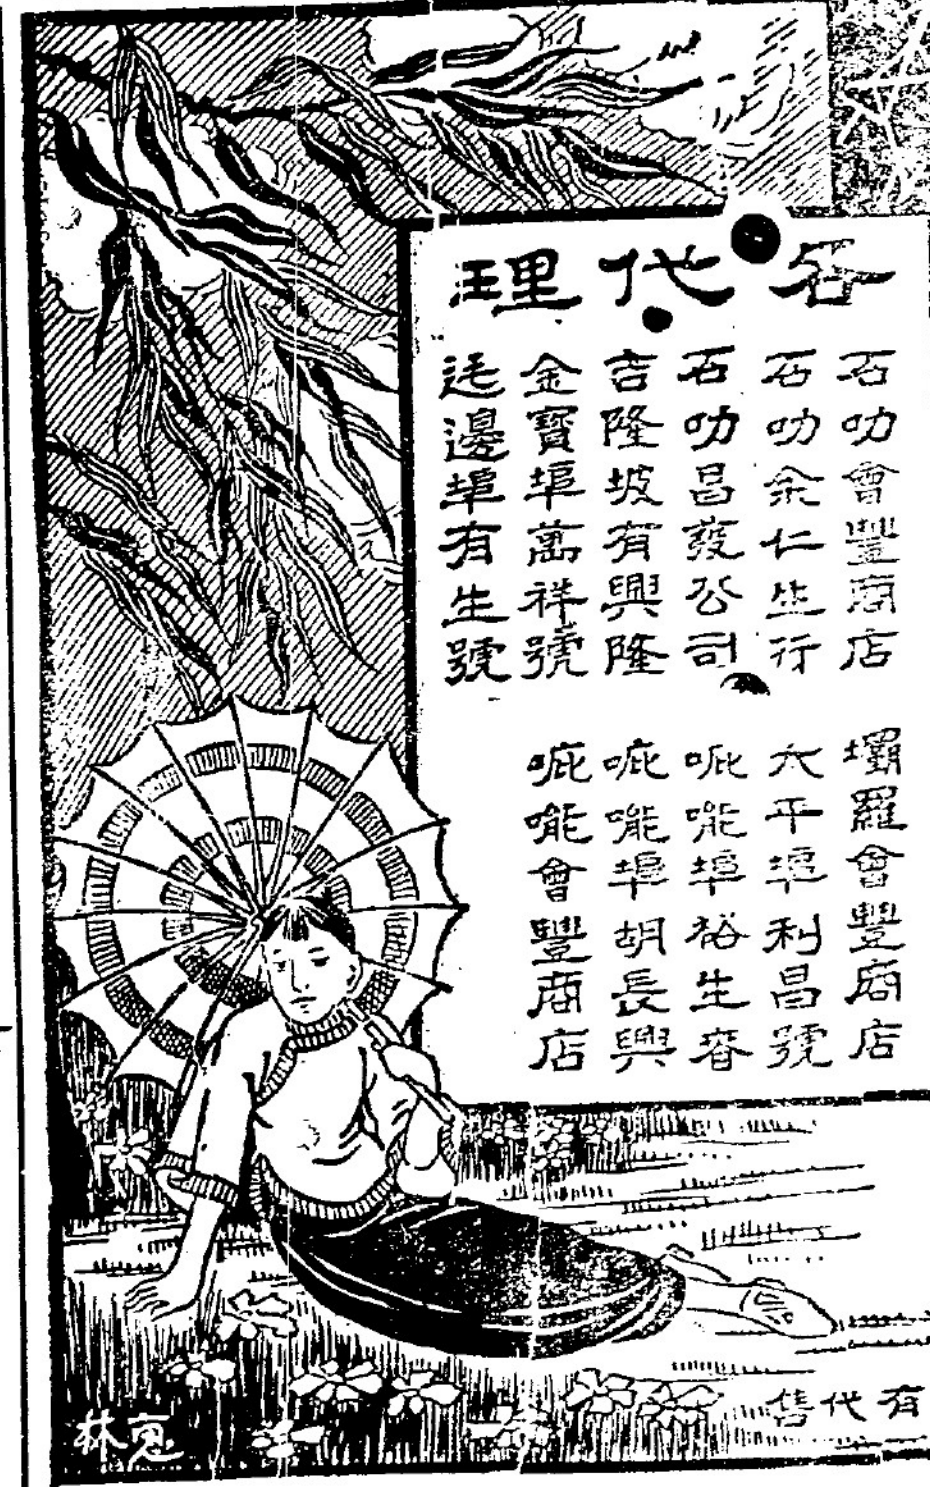 各代理
石叻會豐商店
石叻余仁生行
石叻昌發公司
吉隆坡有興隆
金寶埠萬祥號
邊埠有生號
壩羅會豐商店
太平埠利昌號
吡㖠埠裕生春
吡㖠埠胡長興
吡㖠會豐商店
有代售
林